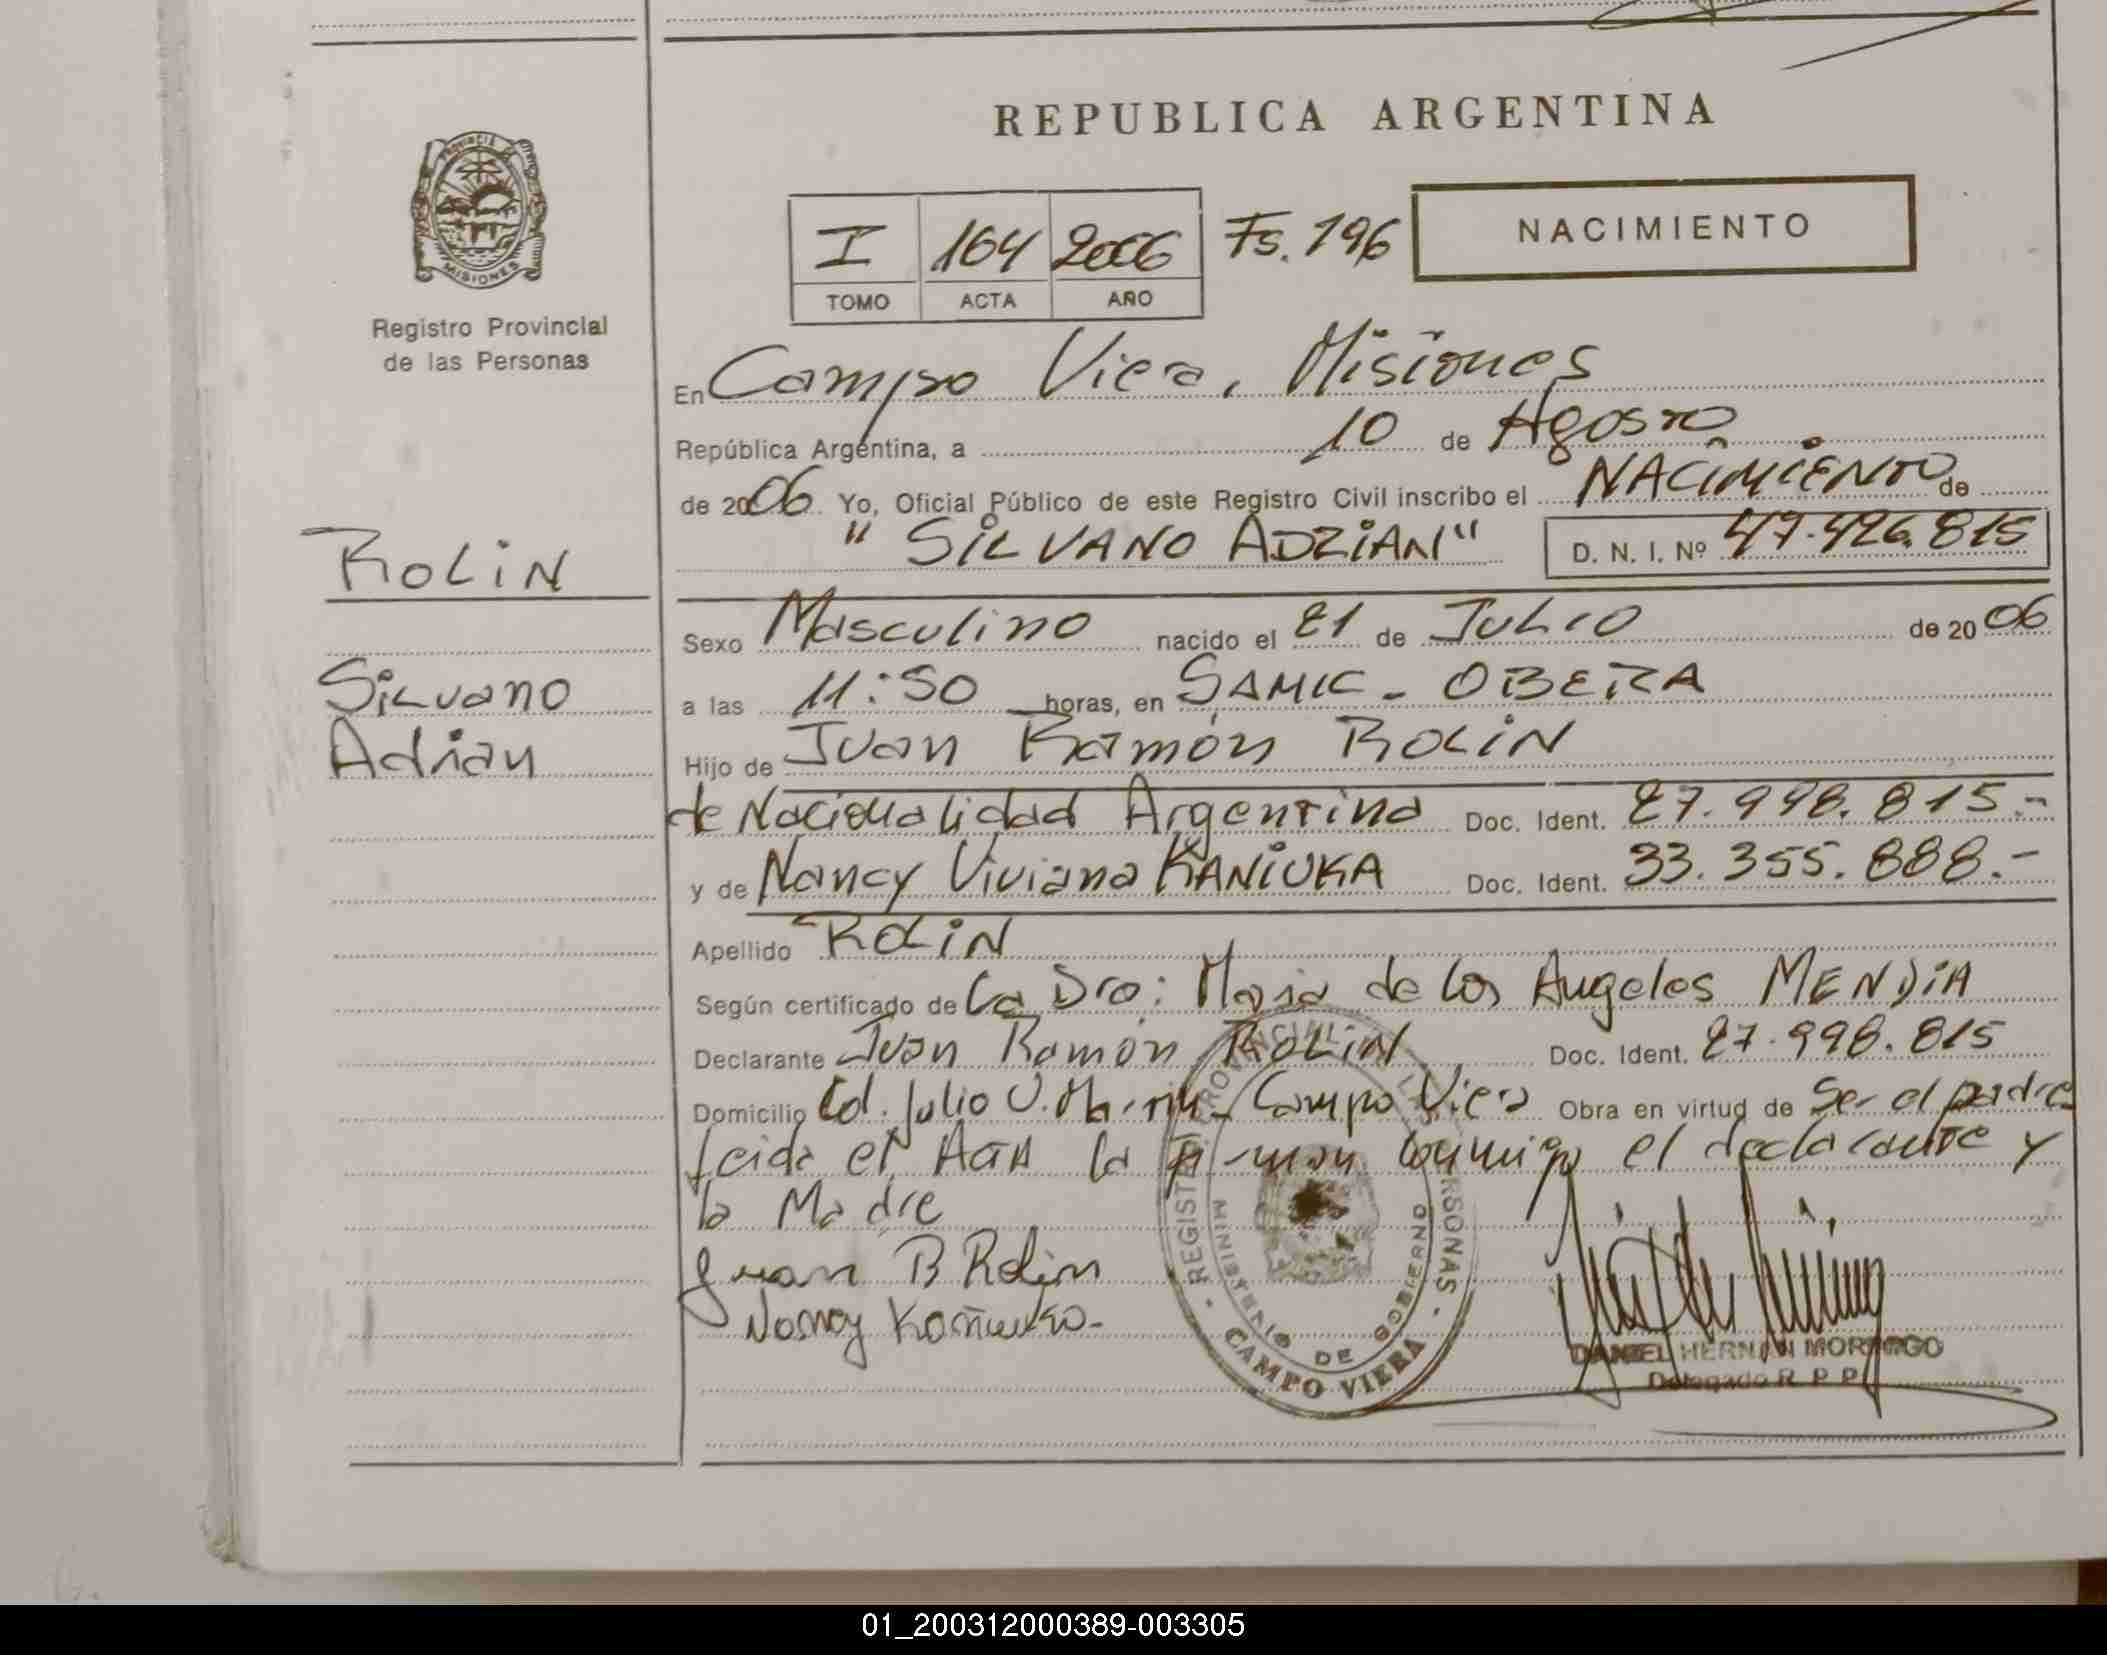 REPUBLICA ARGENTINA
PROVINCIA DE
MISIONES
Registro Provincial
de las Personas
I 164 2006 Fs. 196 NACIMIENTO
TOMO ACTA AÑO
En Campo Viera, Misiones
República Argentina, a 10 de Agosto
de 2006 Yo, Oficial Público de este Registro Civil inscribo el NACIMIENTO de
"SILVANO ADRIAN" D. N. I. Nº 47.426.815
ROLIN
Silvano
Adrian
Sexo Masculino nacido el 21 de Julio de 2006
a las 11:50 horas, en SAMIC - OBERA
Hijo de Juan Ramón ROLIN
de Nacionalidad Argentina Doc. Ident. 27.998.815.-
y de Nancy Viviana KANIUKA Doc. Ident. 33.355.888.-
Apellido ROLIN
Según certificado de La Dra: Maria de los Angeles MENDIA
Declarante Juan Ramón ROLIN Doc. Ident. 27.998.815
Domicilio Cd. Julio U. Martin - Campo Viera Obra en virtud de Ser el padre
leida el Acta la firman conmigo el declarante y
la Madre
Juan R Rolin
Nancy Kaniuka-
REGISTRO PROVINCIAL DE LAS PERSONAS
MINISTERIO DE GOBIERNO
CAMPO VIERA
DANIEL HERNAN
Delegado R. P. P.
01_200312000389-003305